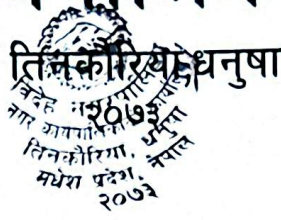 तिनकौरिया, धनुषा
२०७३
विदेह नगरपालिका
नगर कार्यपालिकाको कार्यालय
तिनकौरिया, धनुषा
मधेश प्रदेश, नेपाल
२०७३